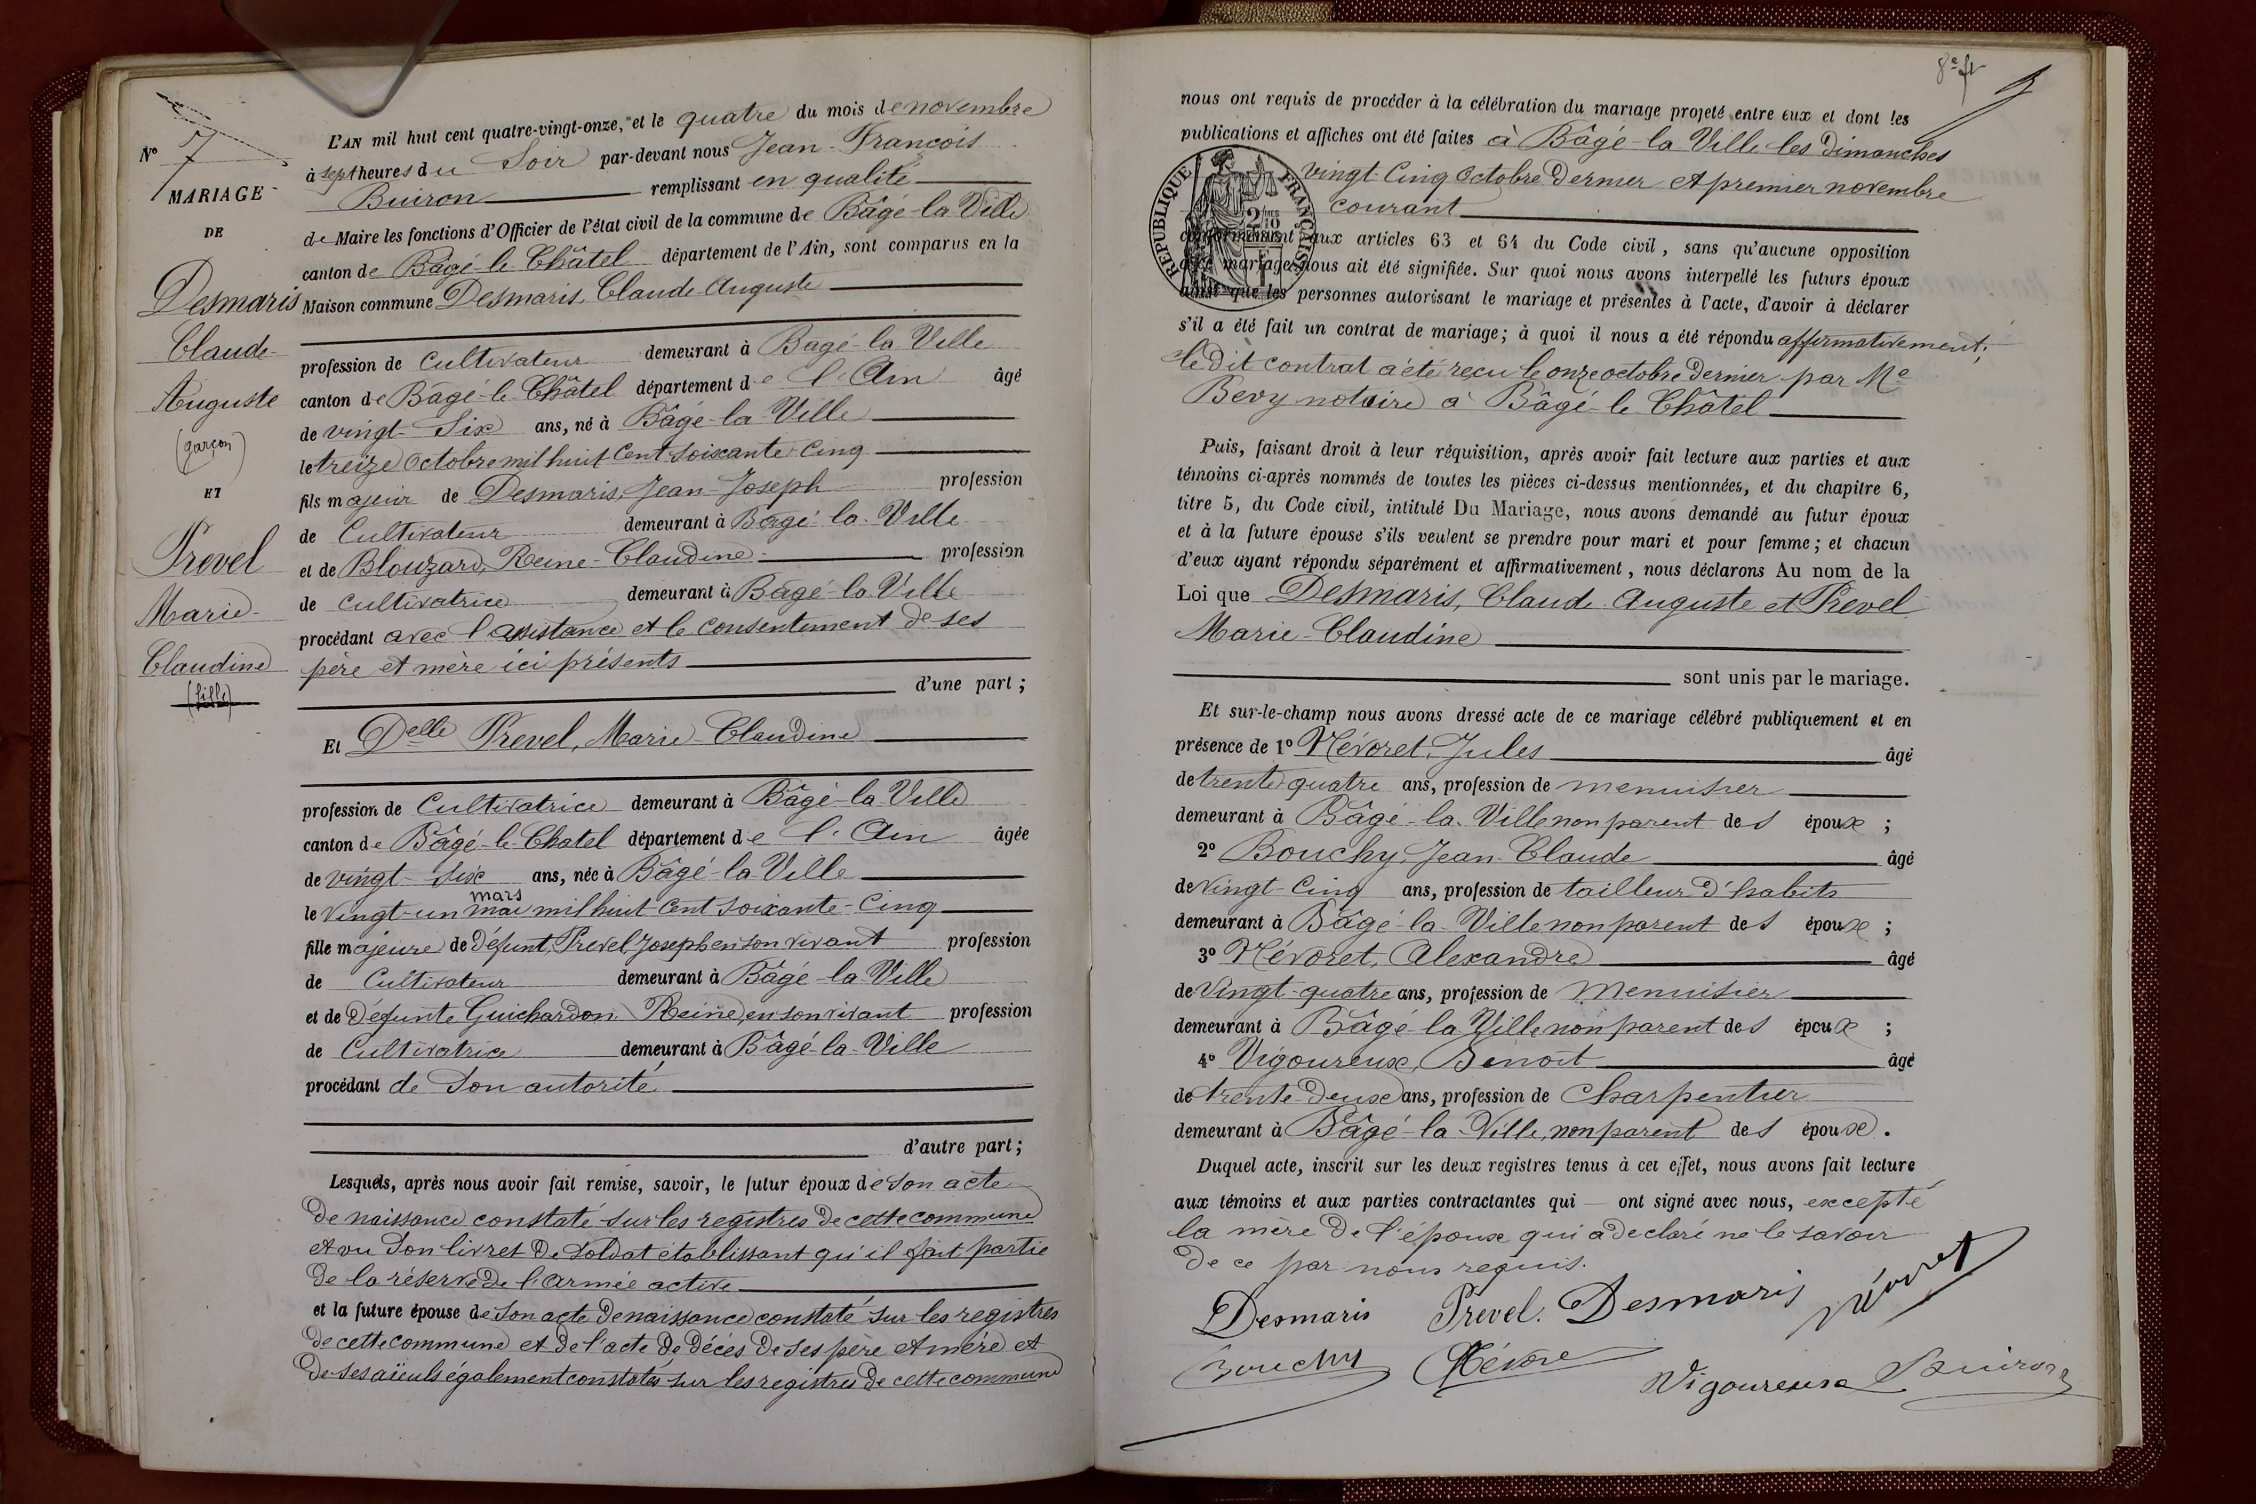 N° 7
MARIAGE
DE
Desmaris
Claude
Auguste
(garçon)
ET
Prevel
Marie
Claudine
(fille)
L'AN mil huit cent quatre-vingt-onze, et le quatre du mois de novembre
à sept heures du Soir par-devant nous Jean-François
Buiron remplissant en qualité
de Maire les fonctions d'Officier de l'état civil de la commune de Bâgé-la-Ville
canton de Bâgé-le-Châtel département de l'Ain, sont comparus en la
Maison commune Desmaris, Claude Auguste
profession de Cultivateur demeurant à Bagé-la-Ville
canton de Bâgé-le-Châtel département de l'Ain âgé
de vingt-Six ans, né à Bâgé-la-Ville
le treize Octobre mil huit Cent Soixante-Cinq
fils majeur de Desmaris, Jean-Joseph profession
de Cultivateur demeurant à Bâgé-la-Ville
et de Blouzard, Reine-Claudine profession
de Cultivatrice demeurant à Bâgé-la-Ville
procédant avec l'assistance et le consentement de ses
père et mère ici présents
d'une part ;
Et Delle Prevel, Marie-Claudine
profession de Cultivatrice demeurant à Bâgé-la-Ville
canton de Bâgé-le-Chatel département de l'Ain âgée
de vingt-six ans, née à Bâgé-la-Ville
mars
le vingt-un mai mil huit Cent soixante-Cinq
fille majeure de défunt, Prevel Joseph en son vivant profession
de Cultivateur demeurant à Bâgé-la-Ville
et de Défunte Guichardon Reine, en son vivant profession
de Cultivatrice demeurant à Bâgé-la-Ville
procédant de Son autorité
d'autre part ;
Lesquels, après nous avoir fait remise, savoir, le futur époux de Son acte
de naissance constaté sur les registres de cette commune
et vu Son livret de Soldat établissant qu'il fait partie
de la réserve de l'armée active
et la future épouse de Son acte de naissance constaté sur les registres
de cette commune et de l'acte de décès de ses père et mère et
de ses aïeuls également constatés sur les registres de cette commune
8e ft
nous ont requis de procéder à la célébration du mariage projeté entre eux et dont les
publications et affiches ont été faites à Bâgé-la-Ville les dimanches
vingt-Cinq Octobre dernier et premier novembre
courant
RÉPUBLIQUE FRANÇAISE
conformément aux articles 63 et 64 du Code civil, sans qu'aucune opposition
audit mariage nous ait été signifiée. Sur quoi nous avons interpellé les futurs époux
ainsi que les personnes autorisant le mariage et présentes à l'acte, d'avoir à déclarer
s'il a été fait un contrat de mariage ; à quoi il nous a été répondu affirmativement ;
le dit contrat a été reçu le onze octobre dernier par Me
Bevy notaire à Bâgé-le-Châtel
Puis, faisant droit à leur réquisition, après avoir fait lecture aux parties et aux
témoins ci-après nommés de toutes les pièces ci-dessus mentionnées, et du chapitre 6,
titre 5, du Code civil, intitulé Du Mariage, nous avons demandé au futur époux
et à la future épouse s'ils veulent se prendre pour mari et pour femme ; et chacun
d'eux ayant répondu séparément et affirmativement, nous déclarons Au nom de la
Loi que Desmaris, Claude Auguste et Prevel
Marie-Claudine
sont unis par le mariage.
Et sur-le-champ nous avons dressé acte de ce mariage célébré publiquement et en
présence de 1° Névoret, Jules âgé
de trente quatre ans, profession de menuisier
demeurant à Bâgé-la-Ville non parent des époux ;
2° Bouchy, Jean-Claude âgé
de vingt-Cinq ans, profession de tailleur d'habits
demeurant à Bâgé-la-Ville non parent des époux ;
3° Névoret, Alexandre âgé
de Vingt-quatre ans, profession de Menuisier
demeurant à Bâgé la Ville non parent des époux ;
4° Vigoureux, Benoit âgé
de trente-deux ans, profession de Charpentier
demeurant à Bâgé-la-Ville, non parent des époux.
Duquel acte, inscrit sur les deux registres tenus à cet effet, nous avons fait lecture
aux témoins et aux parties contractantes qui ont signé avec nous, excepté
la mère de l'époux qui a déclaré ne le savoir
de ce par nous requis.
Desmaris Prevel. Desmaris Névoret
Bouchy Névore
Vigoureux Buiron